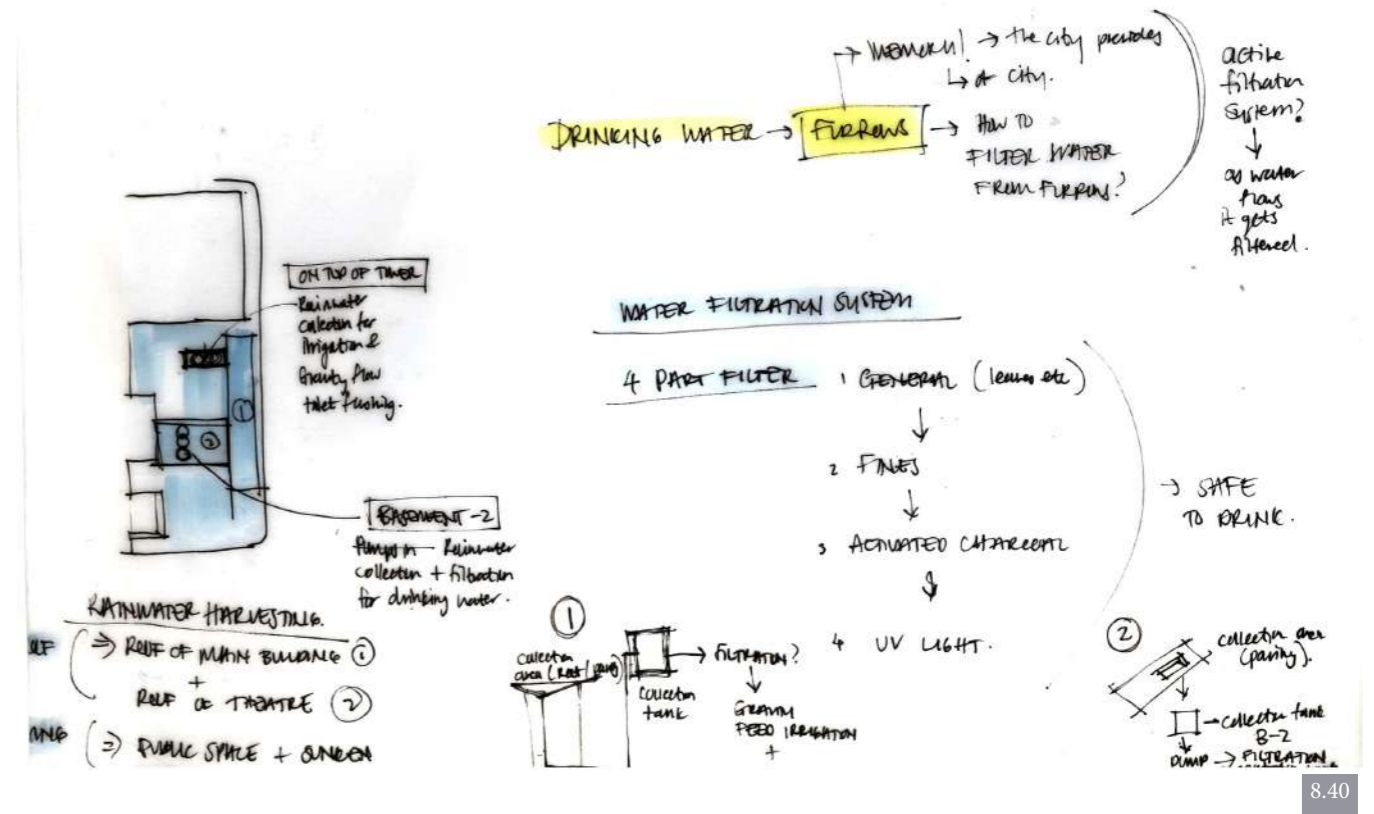 → MEMORY! → the city provides
↳ of city.
DRINKING WATER → FURROWS → HOW TO
FILTER WATER
FROM FURROWS?
active
filtration
system?
↓
as water
flows
it gets
filtered.
ON TOP OF TOWER
Rainwater
collection for
irrigation &
Gravity flow
toilet flushing.
①
②
BASEMENT -2
Rainwater
collection + filtration
for drinking water.
WATER FILTRATION SYSTEM
4 PART FILTER 1 GENERAL (leaves etc)
↓
2 FINES
↓
3 ACTIVATED CHARCOAL
↓
4 UV LIGHT.
→ SAFE
TO DRINK.
RAINWATER HARVESTING.
⇒ ROOF OF MAIN BUILDING ①
+
ROOF OF THEATRE ②
⇒ PUBLIC SPACE + SUNKEN
①
collection
area (Roof/
collection
tank
→ FILTRATION?
↓
GRAVITY
FEED IRRIGATION
+
②
collection area
(paving).
collection tank
B-2
PUMP → FILTRATION
8.40